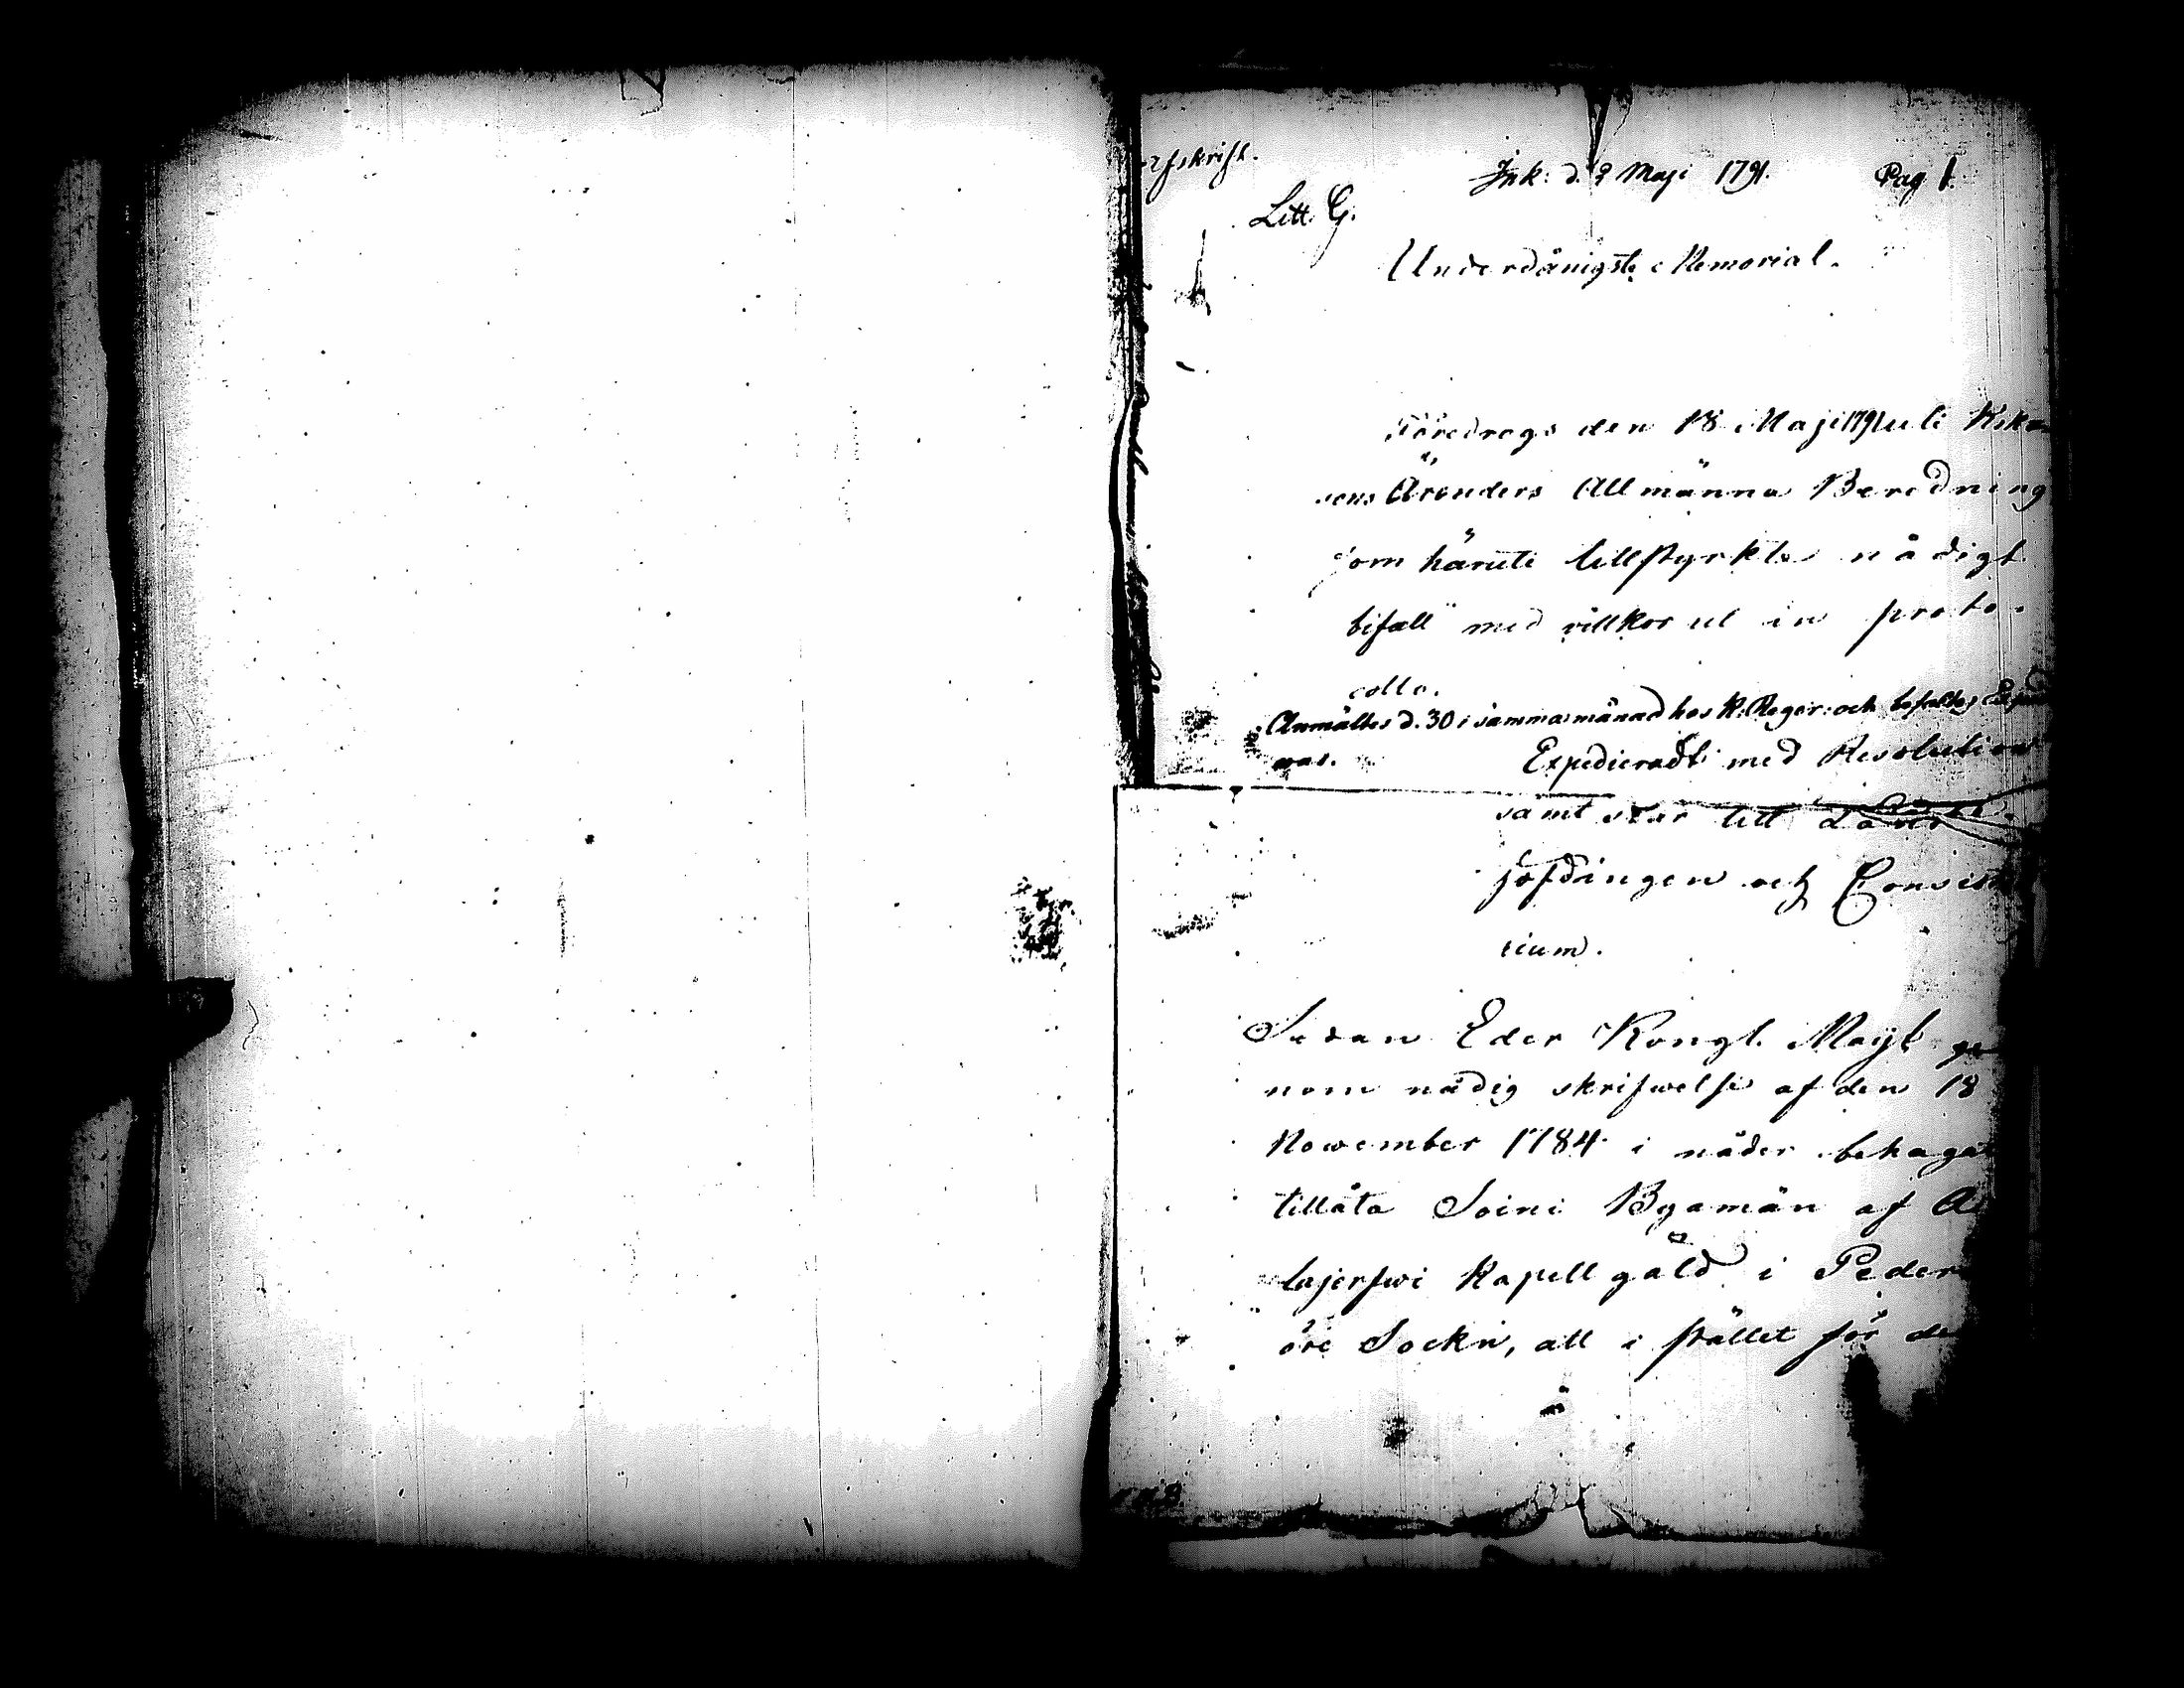 Afskrift.
Ink: d. 2 Maji 1791. Pag 1.
Litt. G.
Underdånigste Memorial.
Föredrogs den 18 Maji 1791 uti Riks
sens Ärenders Allmänna Beredning
som häruti tillstyrkte nådigt
bifall med villkor ut in proto-
collo.
Anmältes d. 30 i samma månad hos K. Reger: och befaltes
Expedieradt med Resolution
samt till
höfdingen och Consisto
rium.
Sedan Eder Kongl. Majt ge
nom nådig skrifwelse af den 18
November 1784 i nåder behagat
tillåta Soini Byamän af A
lajerfwi Kapellgäld i Peder
öre Sockn, att i stället för de